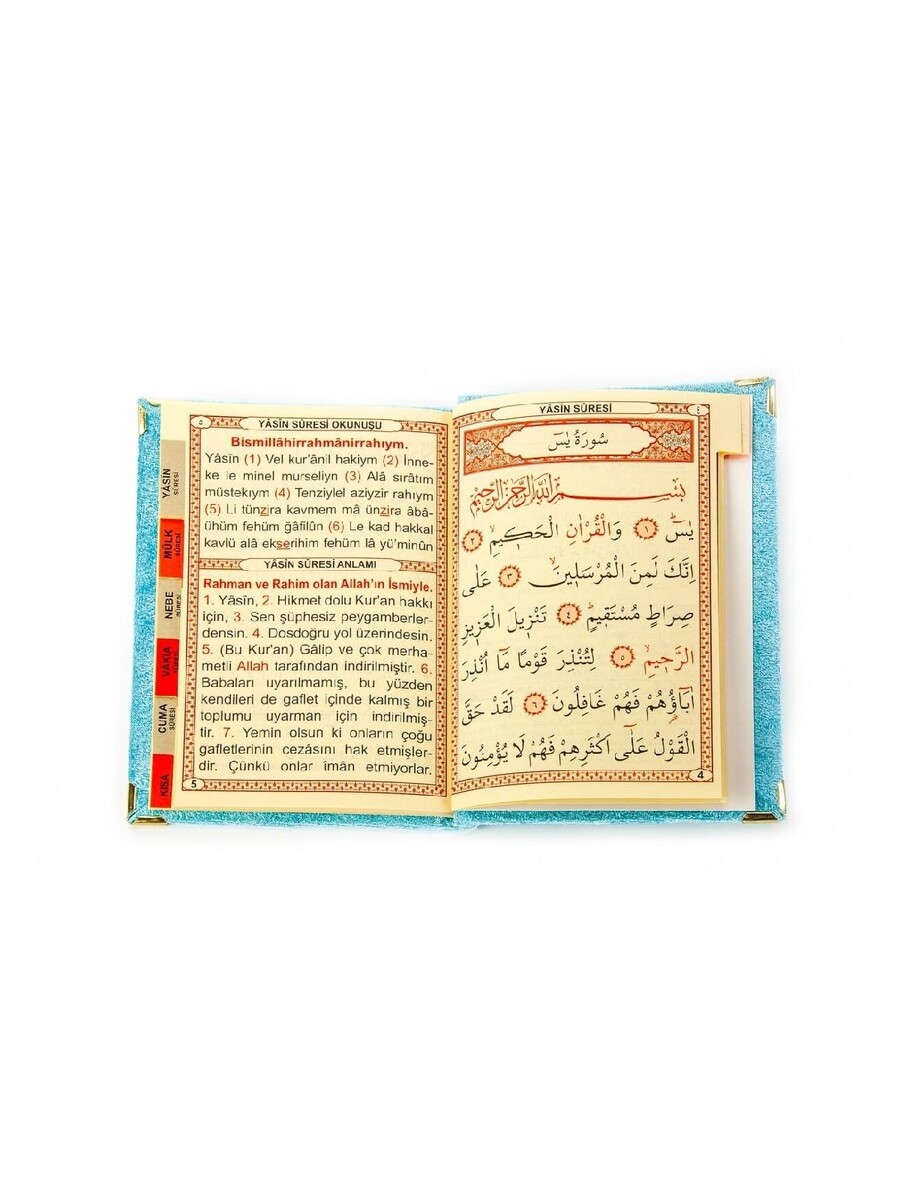 YÂSÎN SÛRESİ
٤
سُورَةُ يٰسٓ
بِسْمِ اللّٰهِ الرَّحْمٰنِ الرَّحٖيمِ
يٰسٓ ۚ ﴿١﴾ وَالْقُرْاٰنِ الْحَكٖيمِ ۙ ﴿٢﴾
اِنَّكَ لَمِنَ الْمُرْسَلٖينَ ۙ ﴿٣﴾ عَلٰى
صِرَاطٍ مُسْتَقٖيمٍ ۜ ﴿٤﴾ تَنْزٖيلَ الْعَزٖيزِ
الرَّحٖيمِ ۙ ﴿٥﴾ لِتُنْذِرَ قَوْمًا مَٓا اُنْذِرَ
اٰبَٓاؤُ۬هُمْ فَهُمْ غَافِلُونَ ﴿٦﴾ لَقَدْ حَقَّ
الْقَوْلُ عَلٰٓى اَكْثَرِهِمْ فَهُمْ لَا يُؤْمِنُونَ
4
٥
YÂSÎN SÛRESİ OKUNUŞU
Bismillâhirrahmânirrahıym.
Yâsîn (1) Vel kur'ânil hakiym (2) İnne-
ke le minel murseliyn (3) Alâ sırâtım
müstekıym (4) Tenziylel aziyzir rahıym
(5) Li tünzira kavmem mâ ünzira âbâ-
ühüm fehüm gâfilûn (6) Le kad hakkal
kavlü alâ ekserihim fehüm lâ yü'minûn
YÂSÎN SÛRESİ ANLAMI
Rahman ve Rahim olan Allah'ın İsmiyle.
1. Yâsîn, 2. Hikmet dolu Kur'an hakkı
için, 3. Sen şüphesiz peygamberler-
densin. 4. Dosdoğru yol üzerindesin.
5. (Bu Kur'an) Gâlip ve çok merha-
metli Allah tarafından indirilmiştir. 6.
Babaları uyarılmamış, bu yüzden
kendileri de gaflet içinde kalmış bir
toplumu uyarman için indirilmiş-
tir. 7. Yemin olsun ki onların çoğu
gafletlerinin cezâsını hak etmişler-
dir. Çünkü onlar îmân etmiyorlar.
5
YÂSİN
SÛRESİ
MÜLK
SÛRESİ
NEBE
SÛRESİ
VAKIA
SÛRESİ
CUMA
SÛRESİ
KISA